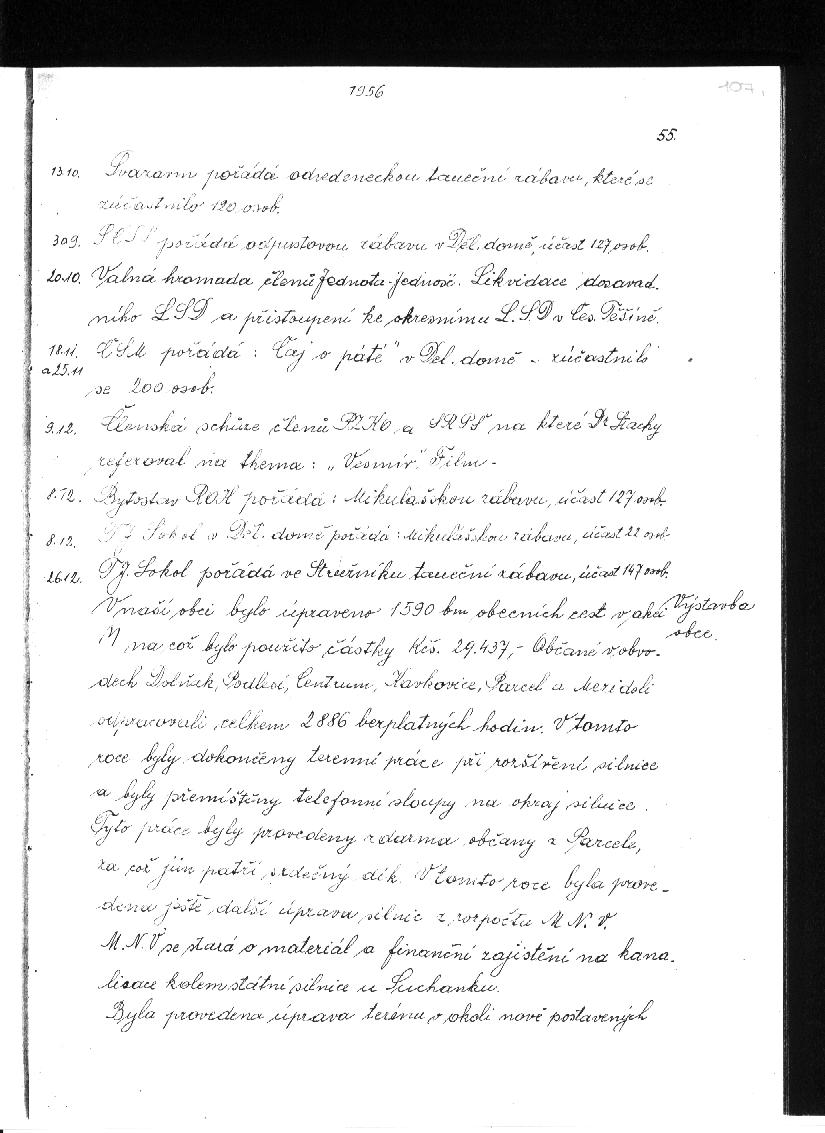 1956
107.
55.
13.10. Svazarm pořádá odvedeneckou taneční zábavu, které se
zúčastnilo 120 osob.
30.9. pořádá odpustovou zábavu v Děl. domě, účast 127 osob.
20.10. Valná hromada členů Jednota-Jednosć. Likvidace dosavad-
ního LSD a přistoupení ke okresnímu L.S.D v Čes. Těšíně.
18.11. ČSM pořádá: Čaj o páté" v Děl. domě - zúčastnilo
a 25.11 se 200 osob.
9.12. Členská schůze členů PZKO a SRPŠ na které Dr Stachy
referoval na thema: „Vesmír". Film -
8.12. Bytostav ROH pořádá: Mikulášskou zábavu, účast 127 osob.
8.12. TJ Sokol v Děl. domě pořádá: Mikulášskou zábavu, účast 22 osob
26.12. TJ. Sokol pořádá ve Střelníku taneční zábavu, účast 147 osob.
V naší obci bylo úpraveno 1590 bm obecních cest v akci Výstavba
M na což bylo použito částky Kčs. 29.437,- Občané v obvo- obce.
dech Dolňák, Podlesí, Centrum, Kavkovice, Parcel a Mezidolí
odpracovali celkem 2886 bezplatných hodin. V tomto
roce byly dokončeny terenní práce při rozšíření silnice
a byly přemístěny telefonní sloupy na okraj silnice.
Tyto práce byly provedeny zdarma občany z Parcele,
za což jim patří srdečný dík. V tomto roce byla prove-
dena ještě další úprava silnic z rozpočtu M.N.V.
M.N.V se stará o materiál a finanční zajistění na kana-
lisace kolem státní silnice u Suchanku.
Byla provedena úprava terénu v okolí nově postavených